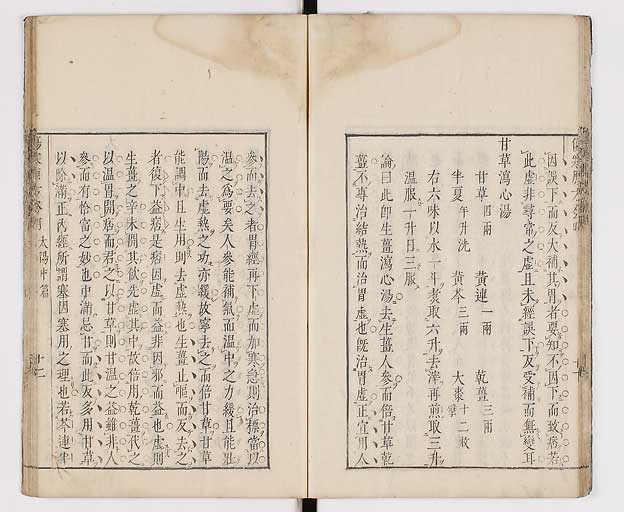 因誤下而反大補其胃者要知不因下而致痞若
此虛非尋常之虛且未經誤下及受補而無變耳
甘草瀉心湯
甘草四兩 黃連一兩 乾薑三兩
半夏半升洗 黃芩三兩 大棗十二枚擘
右六味以水一斗煑取六升去滓再煎取三升
溫服一升日三服
論曰此即生薑瀉心湯去生薑人參而倍甘草乾
薑不專治結熱而治胃虛也旣治胃虛正宜用人
參而去之者胃經再下虛而加寒急則治標當以
溫之為要矣人參能補氣而溫中之力緩且能壯
陽而去虛熱之功亦緩故寧去之而倍甘草甘草
能調中且生用則去虛熱也生薑止嘔而反去之
者復下益痞是痞因虛而益非因邪而益也虛則
生薑之辛未開其飲先虛其中故倍用乾薑代之
以溫胃開痞而君之以甘草則甘溫之益難非人
參而有恰當之妙也中滿忌甘而此反多用甘草
以除滿正內經所謂塞因塞用之理也若芩連半
太陽中篇